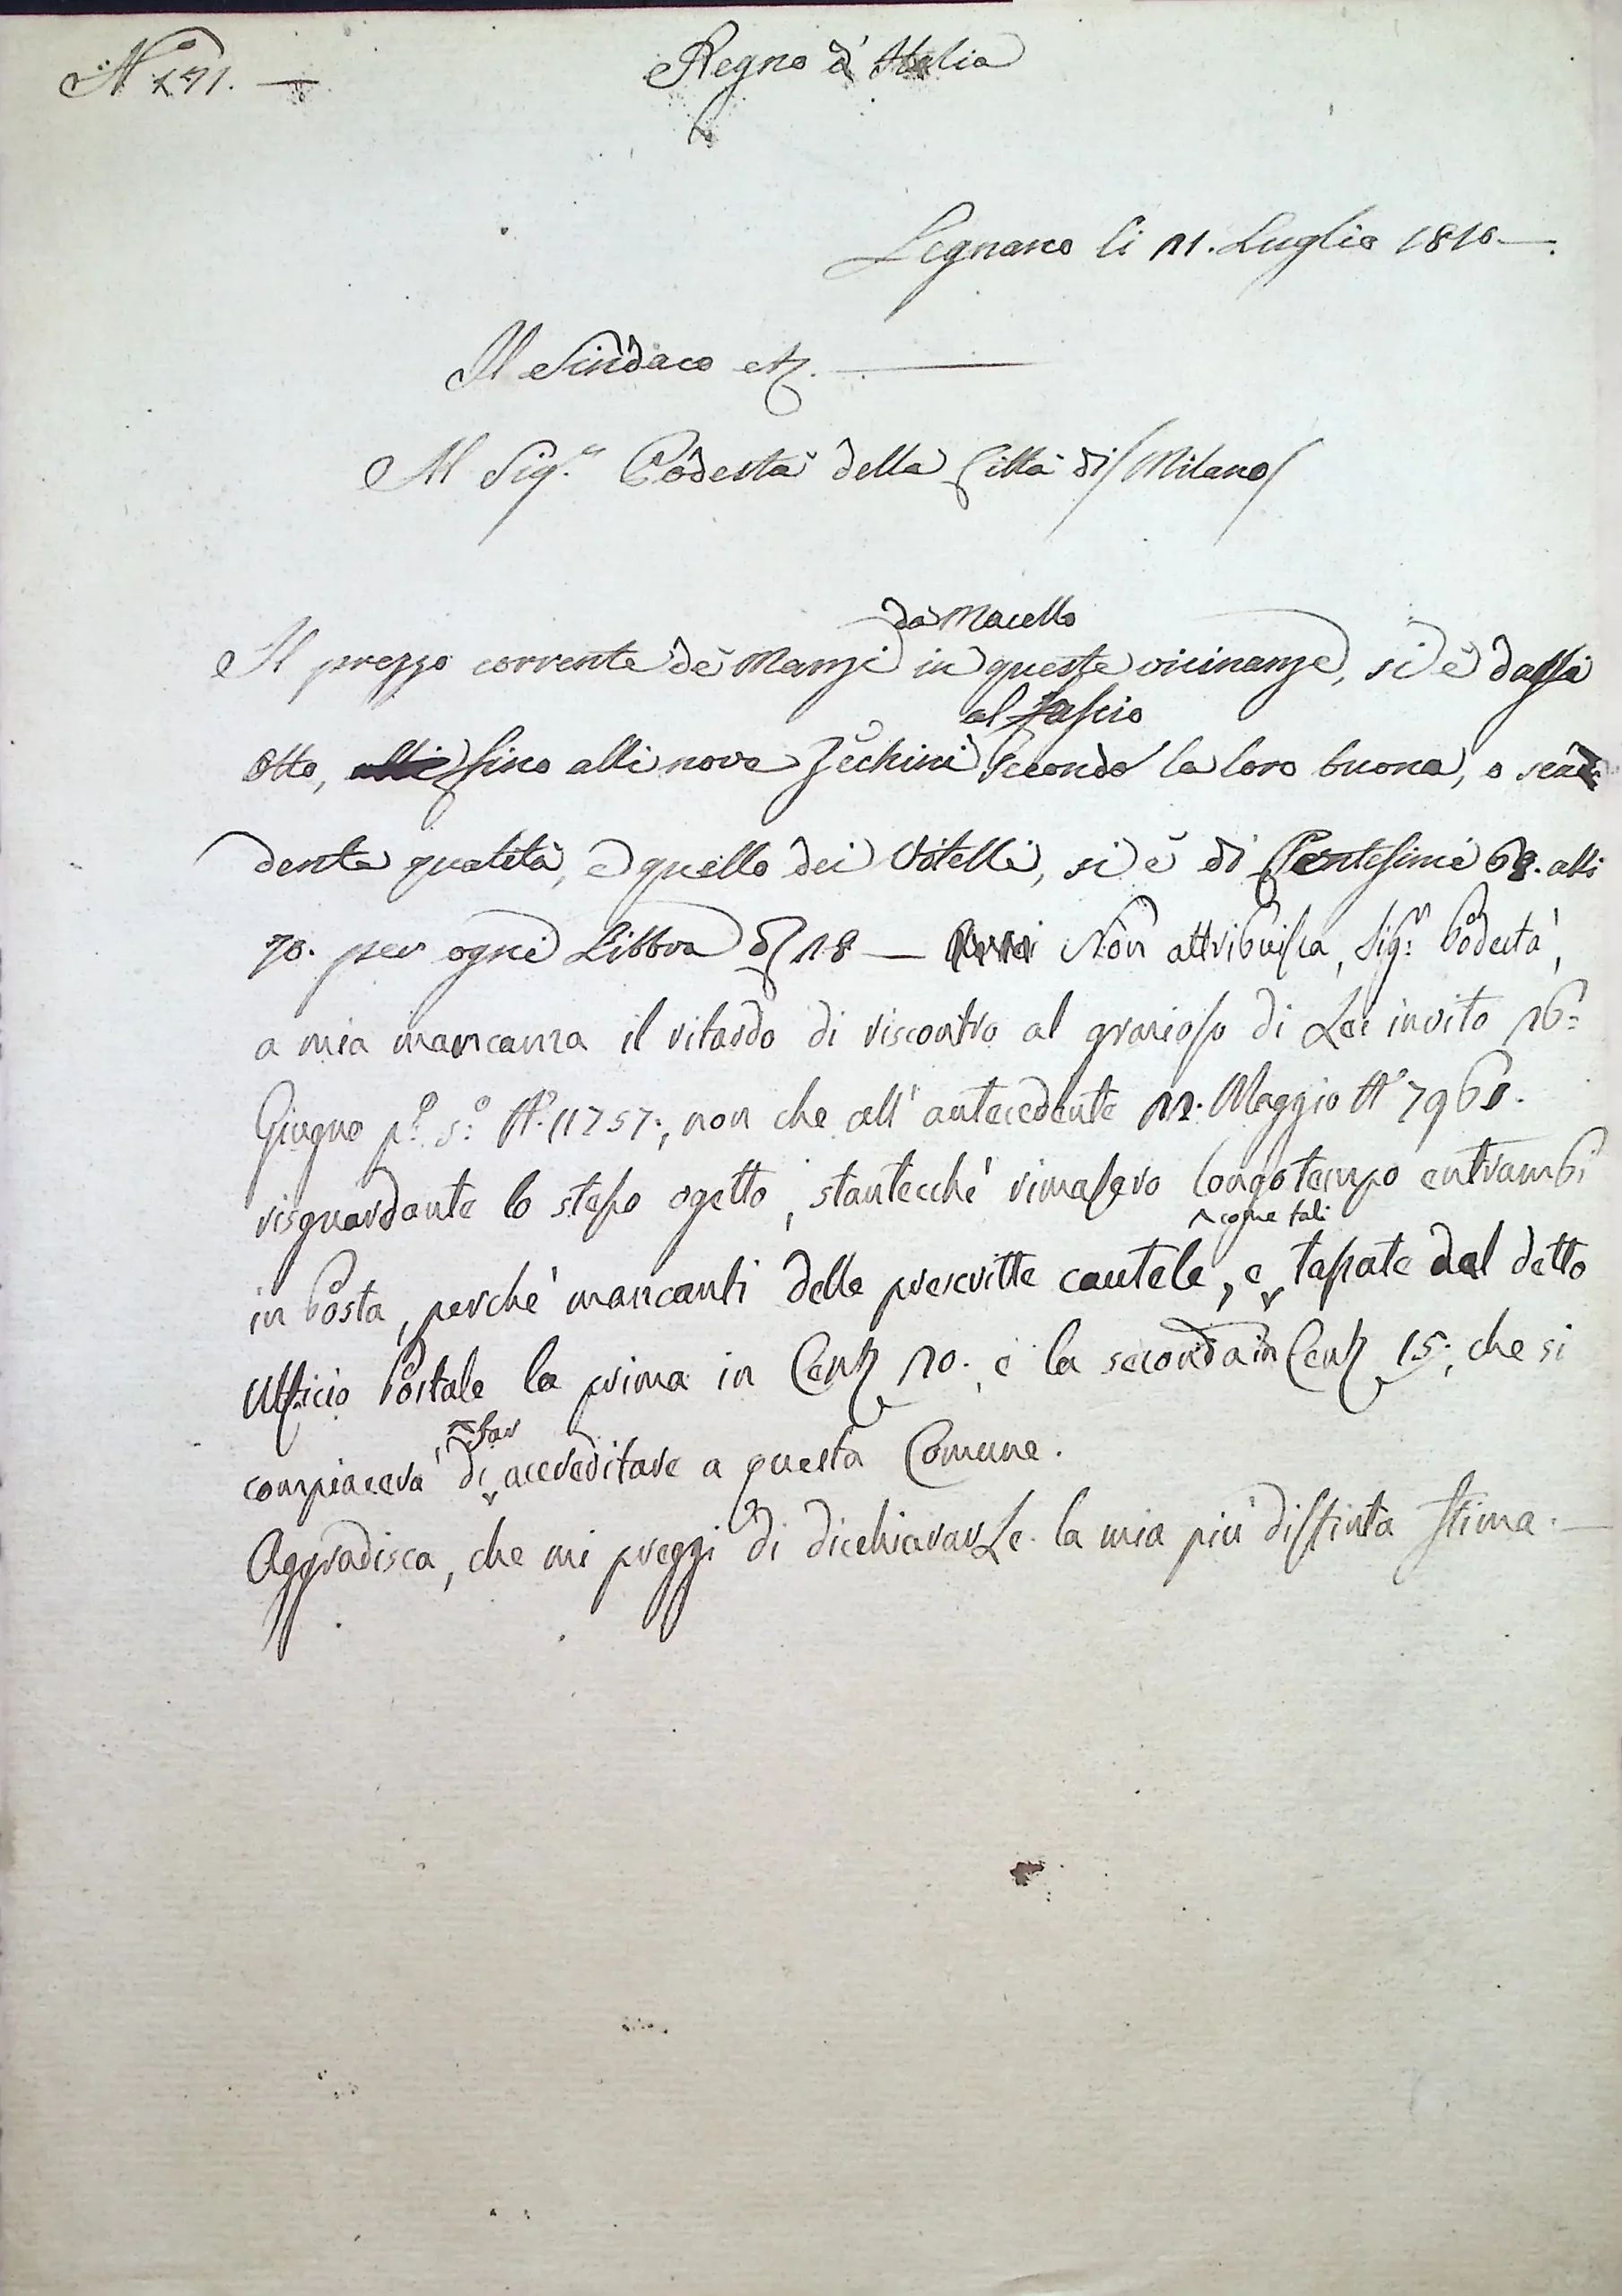 N.º 171.
Regno d'Italia
Legnano li 11. Luglio 1810.
Il Sindaco etc.
Al Sig.r Podestà della Città di Milano
da Macello
Il prezzo corrente de Manzi in queste vicinanze, si è dalli
al fascio
Otto, fino alli nove Zechini secondo la loro buona, o scad
dente qualità, e quello dei Vitelli, si è di Centesimi 68. alli
70. per ogni Libbra 18 — Non attribuisca, Sig.r Podestà,
a mia mancanza il ritardo di riscontro al grazioso di Lei invito 16=
Giugno p.º s.º Nº 11757., non che all'antecedente 12. Maggio Nº 7968.
risguardante lo stesso ogetto, stantecché rimasero longo tempo entrambi
come tali
in Posta, perché mancanti delle prescritte cautele, e tassate dal detto
Ufficio Postale la prima in Cent. 10., e la seconda in Cent. 15., che si
far
compiacerà di accreditare a questa Comune.
Aggradisca, che mi preggi di dicchiararLe la mia più distinta stima.